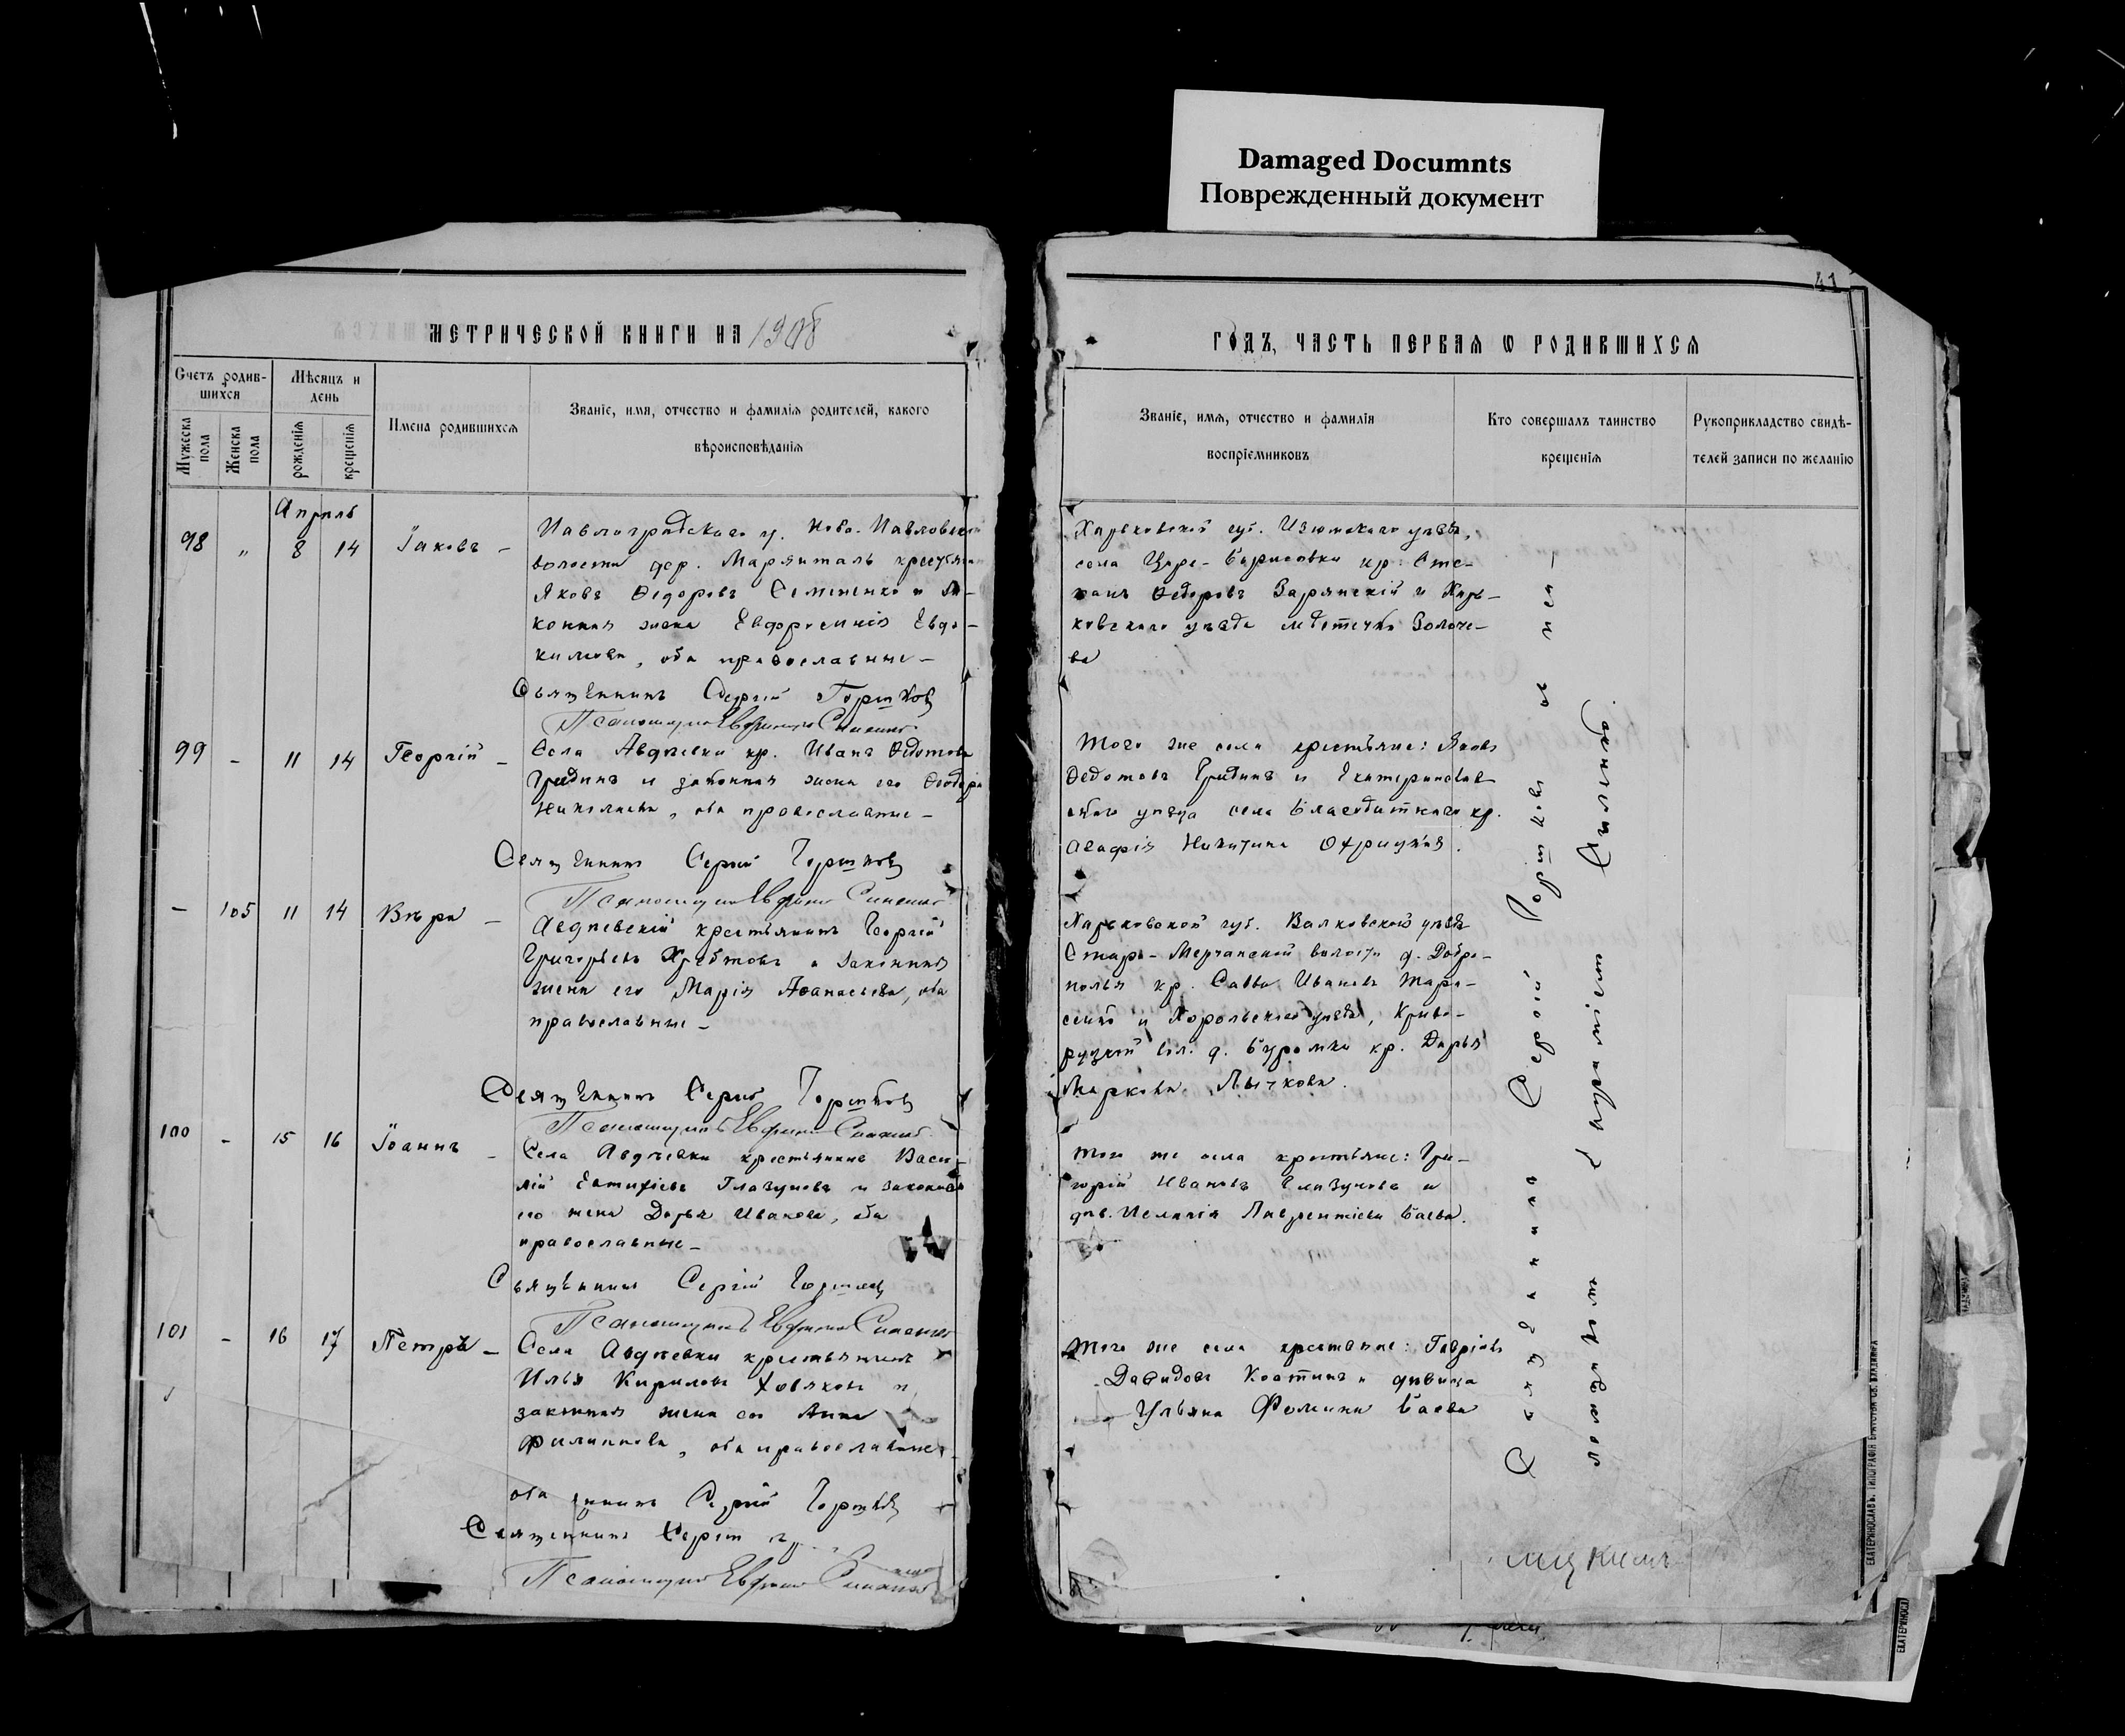 Damaged Documnts
Поврежденный документ
41
МЕТРИЧЕСКОЙ КНИГИ НА 1908
ГОДЪ, ЧАСТЬ ПЕРВАЯ Ѡ РОДИВШИХСЯ
Счетъ родив-
шихся
Мужеска пола
Женска пола
Мѣсяцъ и
день
рожденія
крещенія
Имена родившихся
Званіе, имя, отчество и фамилія родителей, какого
вѣроисповѣданія
Званіе, имя, отчество и фамилія
воспріемниковъ
Кто совершалъ таинство
крещенія
Рукоприкладство свидѣ-
телей записи по желанію
Апрѣль
98 " 8 14 Іаковъ –
Павлоградскаго у. Ново-Павловской
волости дер. Маріиталь крестьянин
Яковъ Ѳедоровъ Семененко и за-
конная жена Евфросинія Евдо-
кимова, оба православные –
Священникъ Сергій Горшков
Псаломщикъ
Харьковской губ. Изюмскаго уѣзда,
села Царе-Борисовки кр. Сте-
фанъ Ѳедоровъ Зарянскій и Харь-
ковскаго уѣзда мѣстечка Золоче-
ва
99 – 11 14 Георгій –
Села Авдѣевки кр. Иванъ Ѳедотовъ
Гридинъ и законная жена его Ѳеодора
Николаева, оба православные –
Священникъ Сергій Горшков
Псаломщикъ
Того же села крестьяне: Яковъ
Ѳедотовъ Гридинъ и Екатеринослав-
скаго уѣзда села Благодатнаго кр.
Агафія Никитина
– 105 11 14 Вѣра –
Авдѣевскій крестьянинъ Георгій
Григорьевъ Хребтовъ и законная
жена его Марія Аѳанасьева, оба
православные –
Священникъ Сергій Горшков
Псаломщикъ
Харьковской губ. Валковскаго уѣзда
Старо-Мерчанской волости д. Добро-
полья кр. Савва Ивановъ Тара-
сенко и Хорольскаго уѣзда, Криво-
рудской вол. д. Буромки кр. Дарья
Маркова Лычкова.
100 – 15 16 Іоаннъ –
Села Авдѣевки крестьянинъ Васи-
лій Евтихіевъ Глазуновъ и законная
его жена Дарья Иванова, оба
православные –
Священникъ Сергій Горшков
Псаломщикъ
Того же села крестьяне: Гри-
горій Ивановъ Глазуновъ и
дѣв. Пелагія Лаврентіева Баева.
101 – 16 17 Петръ –
Села Авдѣевки крестьянинъ
Илья Кириловъ Ховяковъ и
законная жена его Анна
Филиппова, оба православные
оба
Сергій Горшков
Священникъ Сергій
Псаломщикъ
Того же села крестьяне: Гавріилъ
Давидовъ Костинъ и дѣвица
Ульяна Фомина Баева
Священникъ Сергій Горшковъ съ пса-
ломщикомъ
ЕКАТЕРИНОСЛАВЪ. ТИПОГРАФІЯ БРАТСТВА СВ. ВЛАДИМІРА